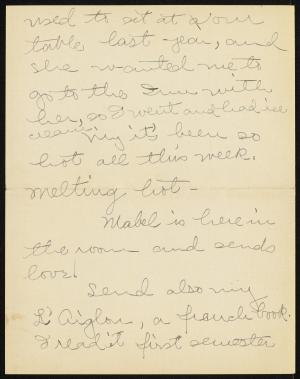 used to sit at our
table last year, and
she wanted me to
go to the Inn with
her, so I went and had ice
cream. My it's been so
hot all this week.
melting hot -
Mabel is here in
the room and sends
love!
Send also my
L'Aiglon, a french book.
I read it first semester